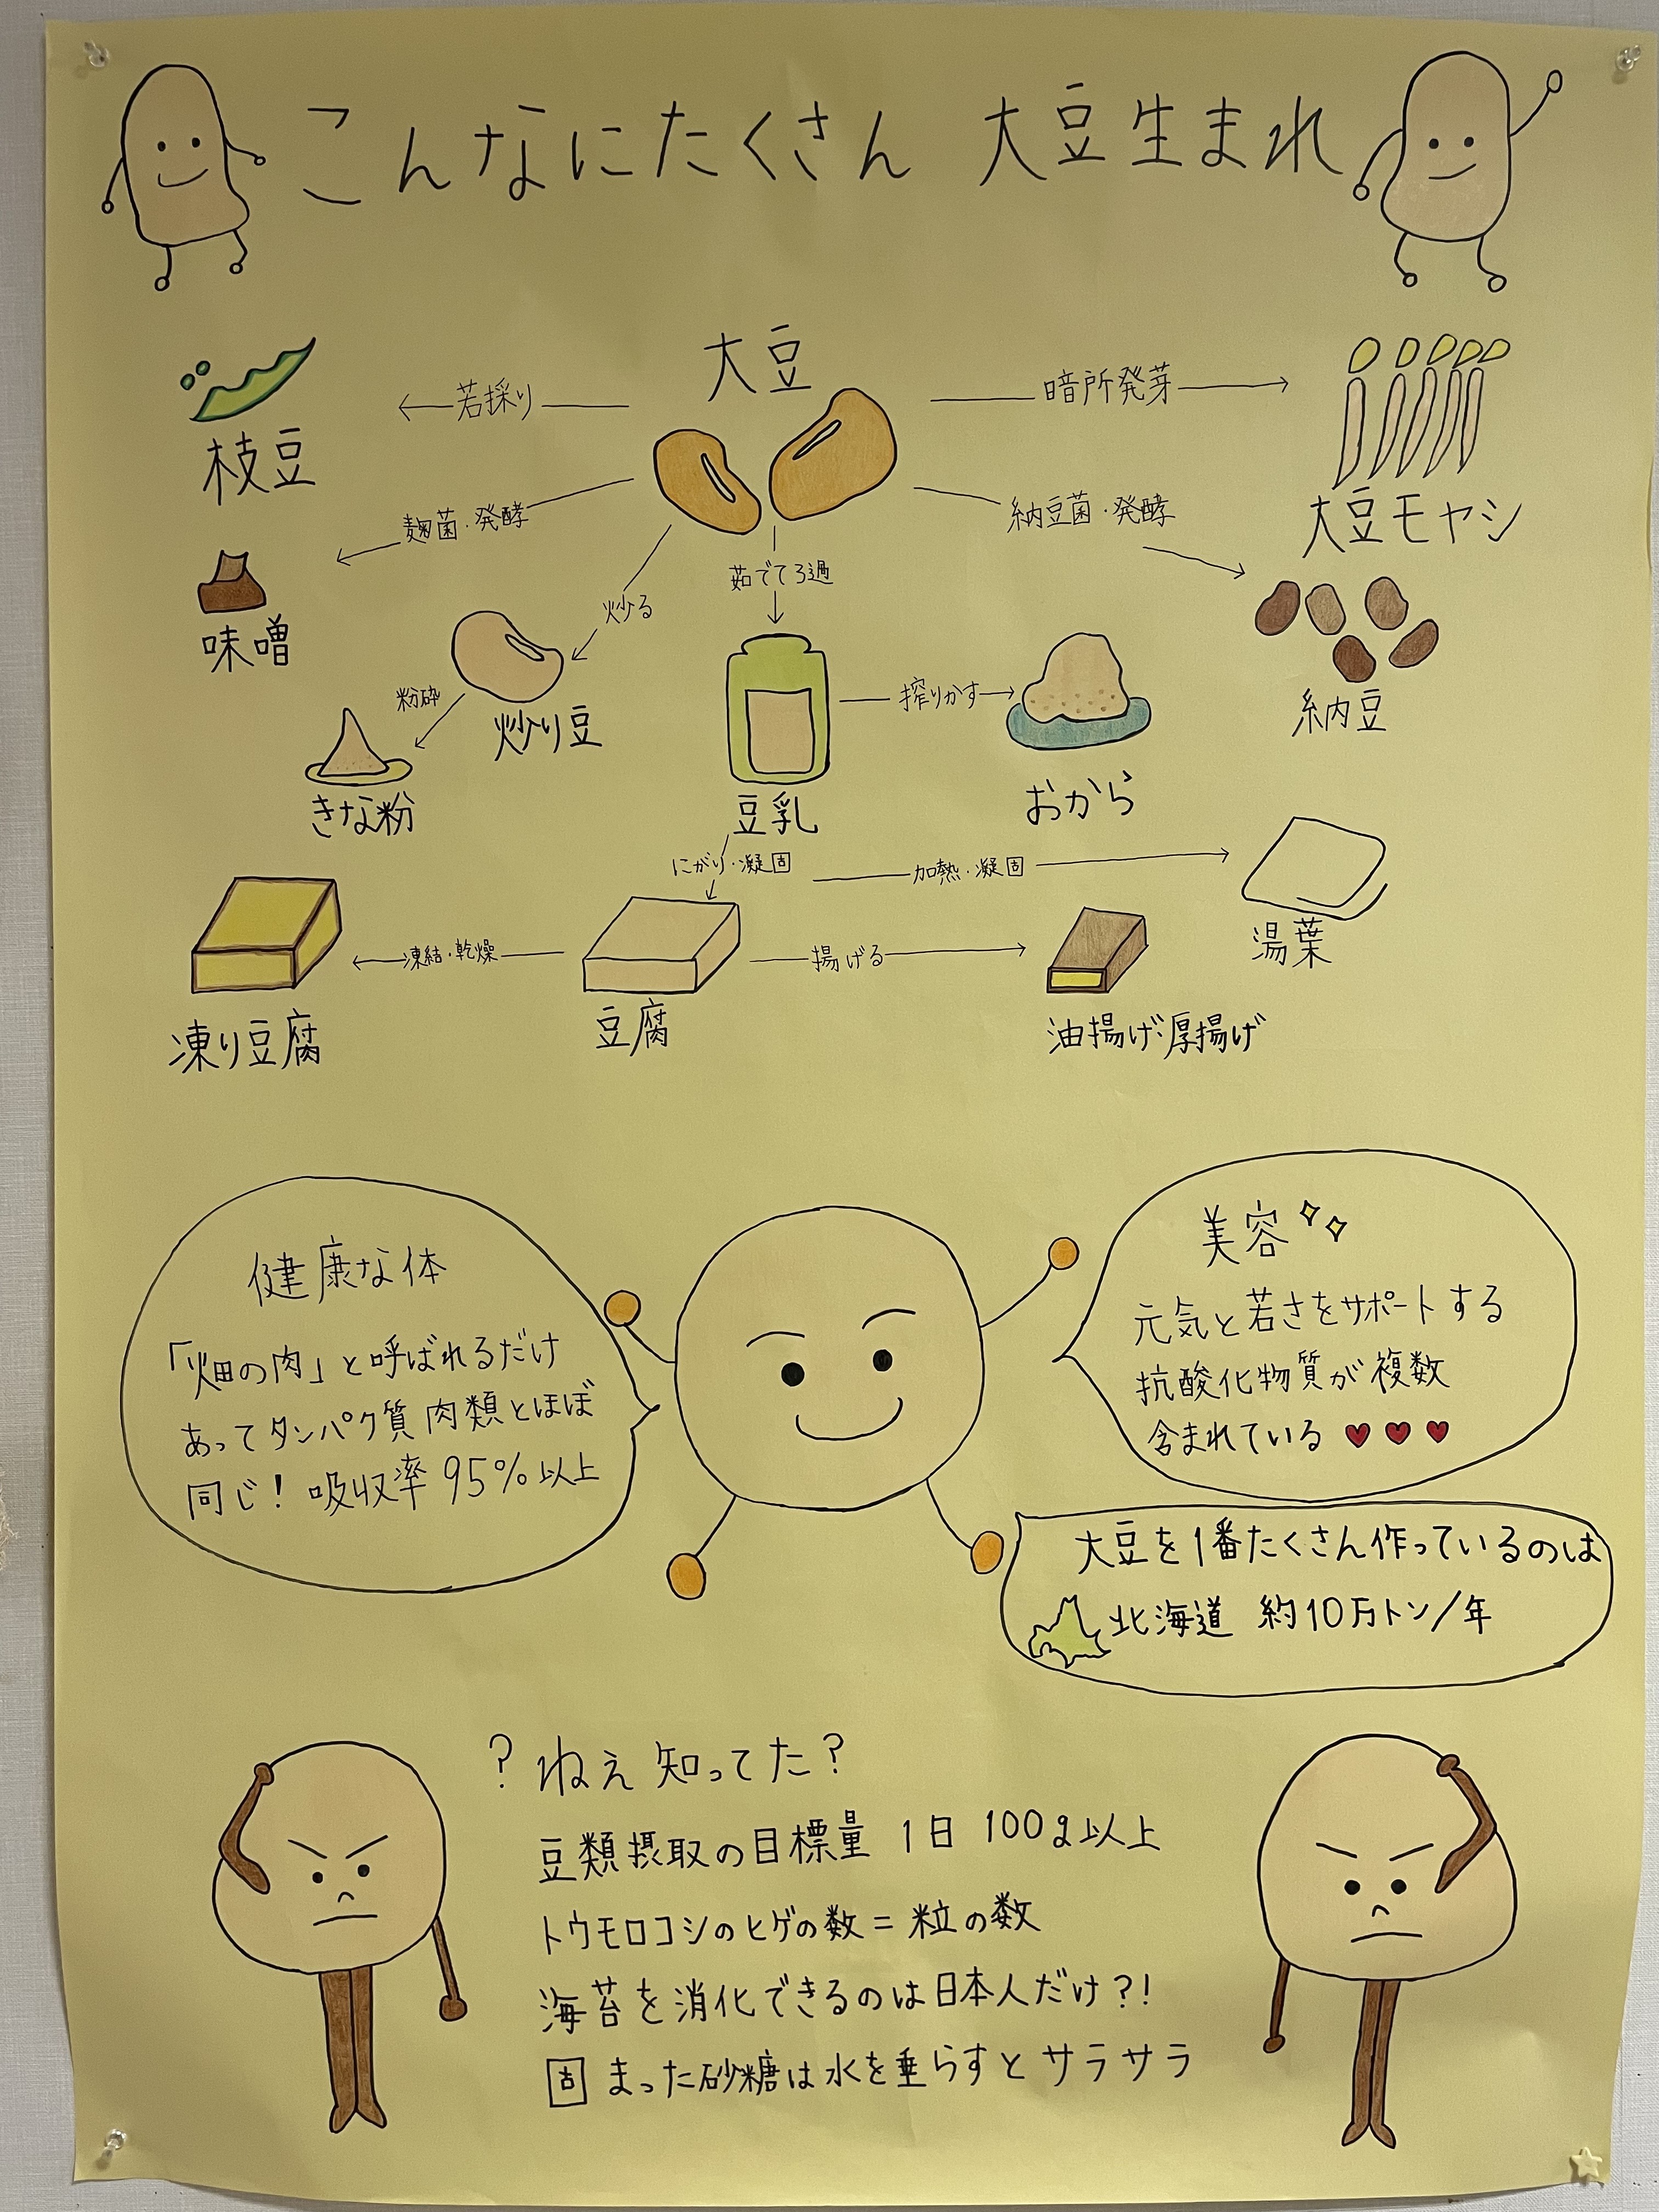 こんなにたくさん 大豆生まれ
大豆
若採り
暗所発芽
枝豆
大豆モヤシ
麹菌・発酵
納豆菌・発酵
味噌
炒る
茹でてろ過
納豆
粉砕
炒り豆
搾りかす
きな粉
豆乳
おから
にがり・凝固
加熱・凝固
湯葉
凍結・乾燥
揚げる
凍り豆腐
豆腐
油揚げ・厚揚げ
健康な体
「畑の肉」と呼ばれるだけ
あってタンパク質肉類とほぼ
同じ!吸収率95%以上
美容
元気と若さをサポートする
抗酸化物質が複数
含まれている♥♥♥
大豆を1番たくさん作っているのは
北海道 約10万トン/年
?ねえ知ってた?
豆類摂取の目標量 1日 100g以上
トウモロコシのヒゲの数=粒の数
海苔を消化できるのは日本人だけ?!
固まった砂糖は水を垂らすとサラサラ